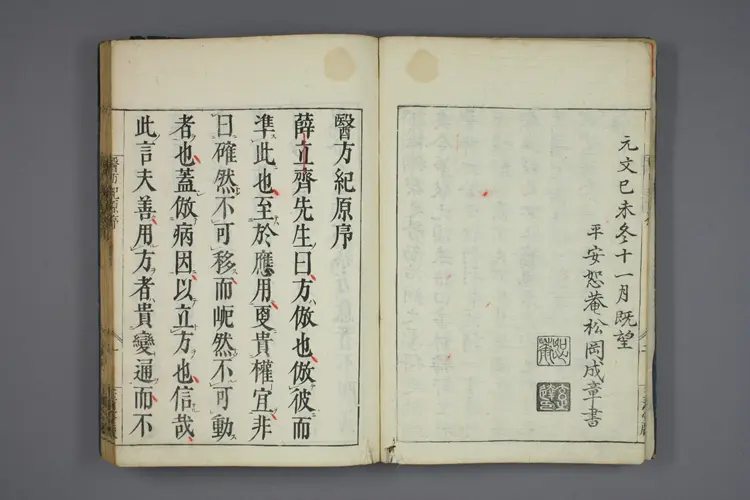 元文己未冬十一月既望
平安恕菴松岡成章書
醫方紀原序
薛立齊先生曰方倣也倣彼而
準此也至於應用更貴權宜非
曰確然不可移而岮然不可動
者也蓋倣病因以立方也信哉
此言夫善用方者貴變通而不
醫方紀原序